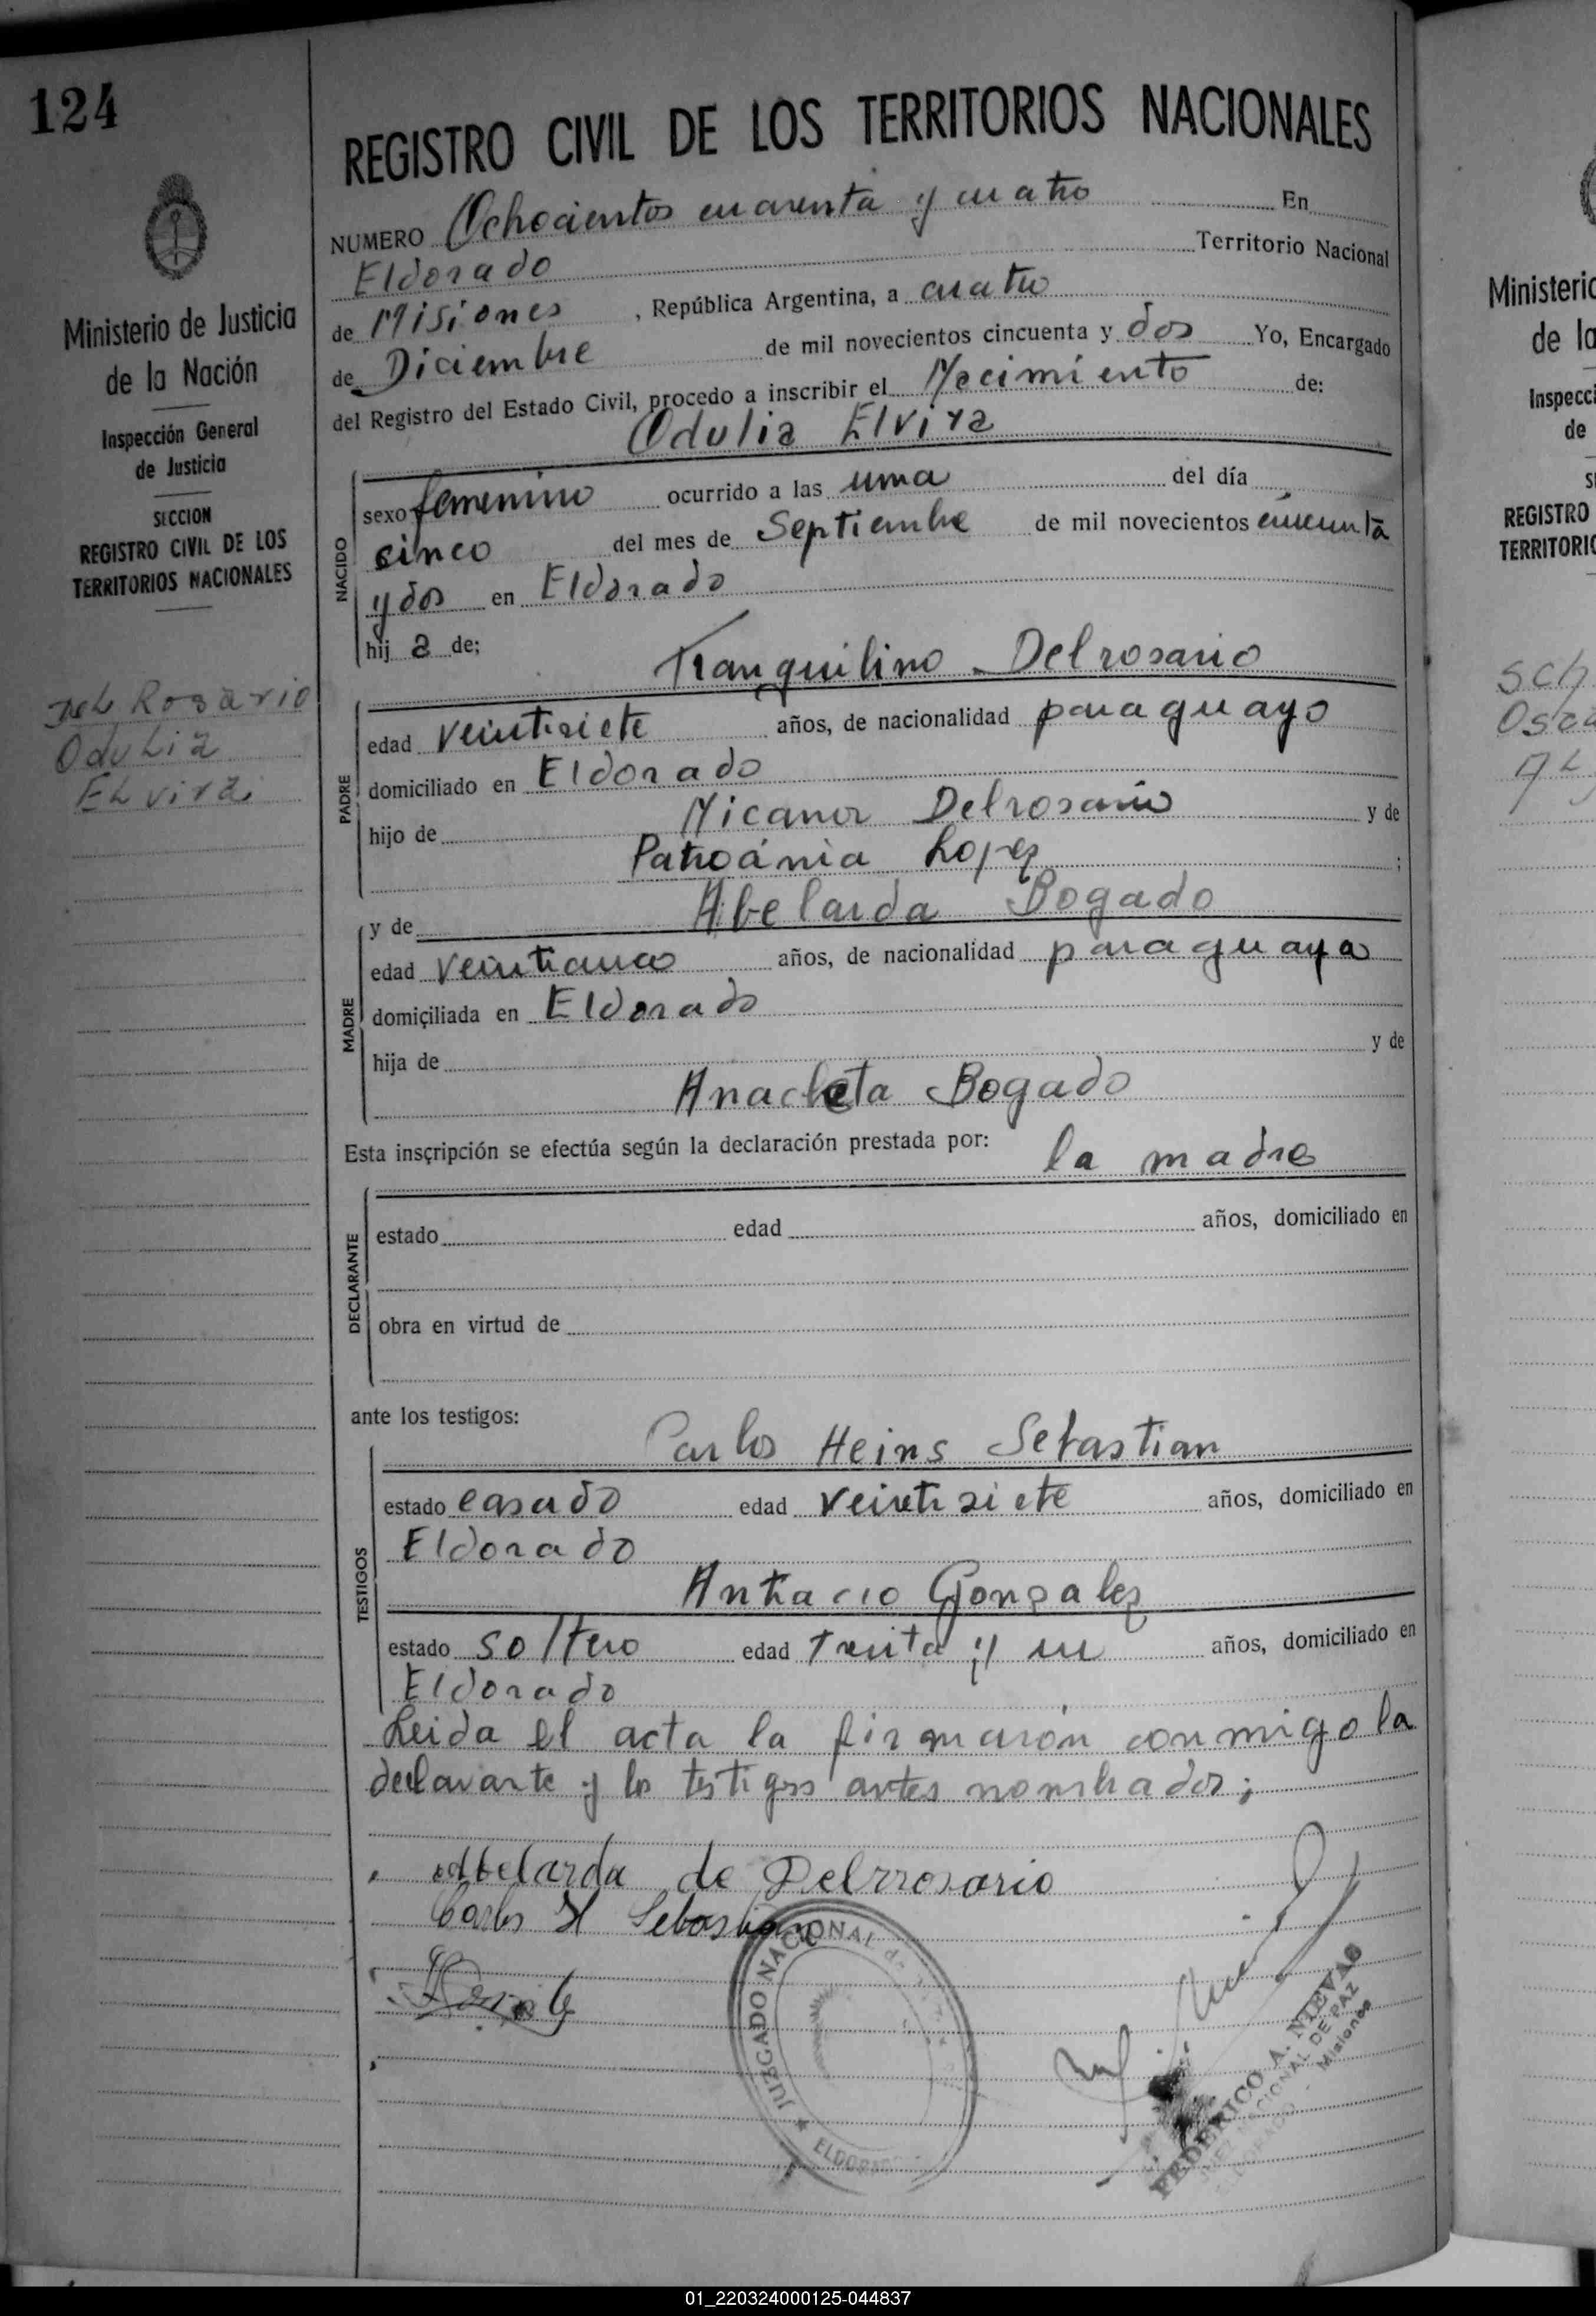 124
Ministerio de Justicia
de la Nación
Inspección General
de Justicia
SECCION
REGISTRO CIVIL DE LOS
TERRITORIOS NACIONALES
Del Rosario
Odulia
Elvira
REGISTRO CIVIL DE LOS TERRITORIOS NACIONALES
NUMERO Ochocientos cuarenta y cuatro En
Eldorado Territorio Nacional
de Misiones, República Argentina, a cuatro
de Diciembre de mil novecientos cincuenta y dos Yo, Encargado
del Registro del Estado Civil, procedo a inscribir el Nacimiento de:
Odulia Elvira
NACIDO
sexo femenino ocurrido a las una del día
cinco del mes de Septiembre de mil novecientos cincuenta
y dos en Eldorado
hij a de;
Tranquilino Delrosario
PADRE
edad veintisiete años, de nacionalidad paraguayo
domiciliado en Eldorado
hijo de Nicanor Delrosario y de
Patrocinia Lopez ;
y de Abelarda Bogado
MADRE
edad años, de nacionalidad paraguaya
domiciliada en Eldorado
hija de y de
Anacleta Bogado
Esta inscripción se efectúa según la declaración prestada por: la madre
DECLARANTE
estado edad años, domiciliado en
obra en virtud de
ante los testigos:
Carlos Heins Sebastian
TESTIGOS
estado casado edad veintisiete años, domiciliado en
Eldorado
Gonzalez
estado soltero edad treinta y un años, domiciliado en
Eldorado
Leida el acta la firmarón conmigo la
declarante y los testigos antes nombrados;
Abelarda de Delrrosario
Carlos H Sebastian
JUZGADO NACIONAL de
ELDORADO
FEDERICO A. NIEVAS
JUEZ NACIONAL DE PAZ
ELDORADO - Misiones
Ministerio
de la
Inspecci
de
S
REGISTRO
TERRITORIO
Sch
01_220324000125-044837